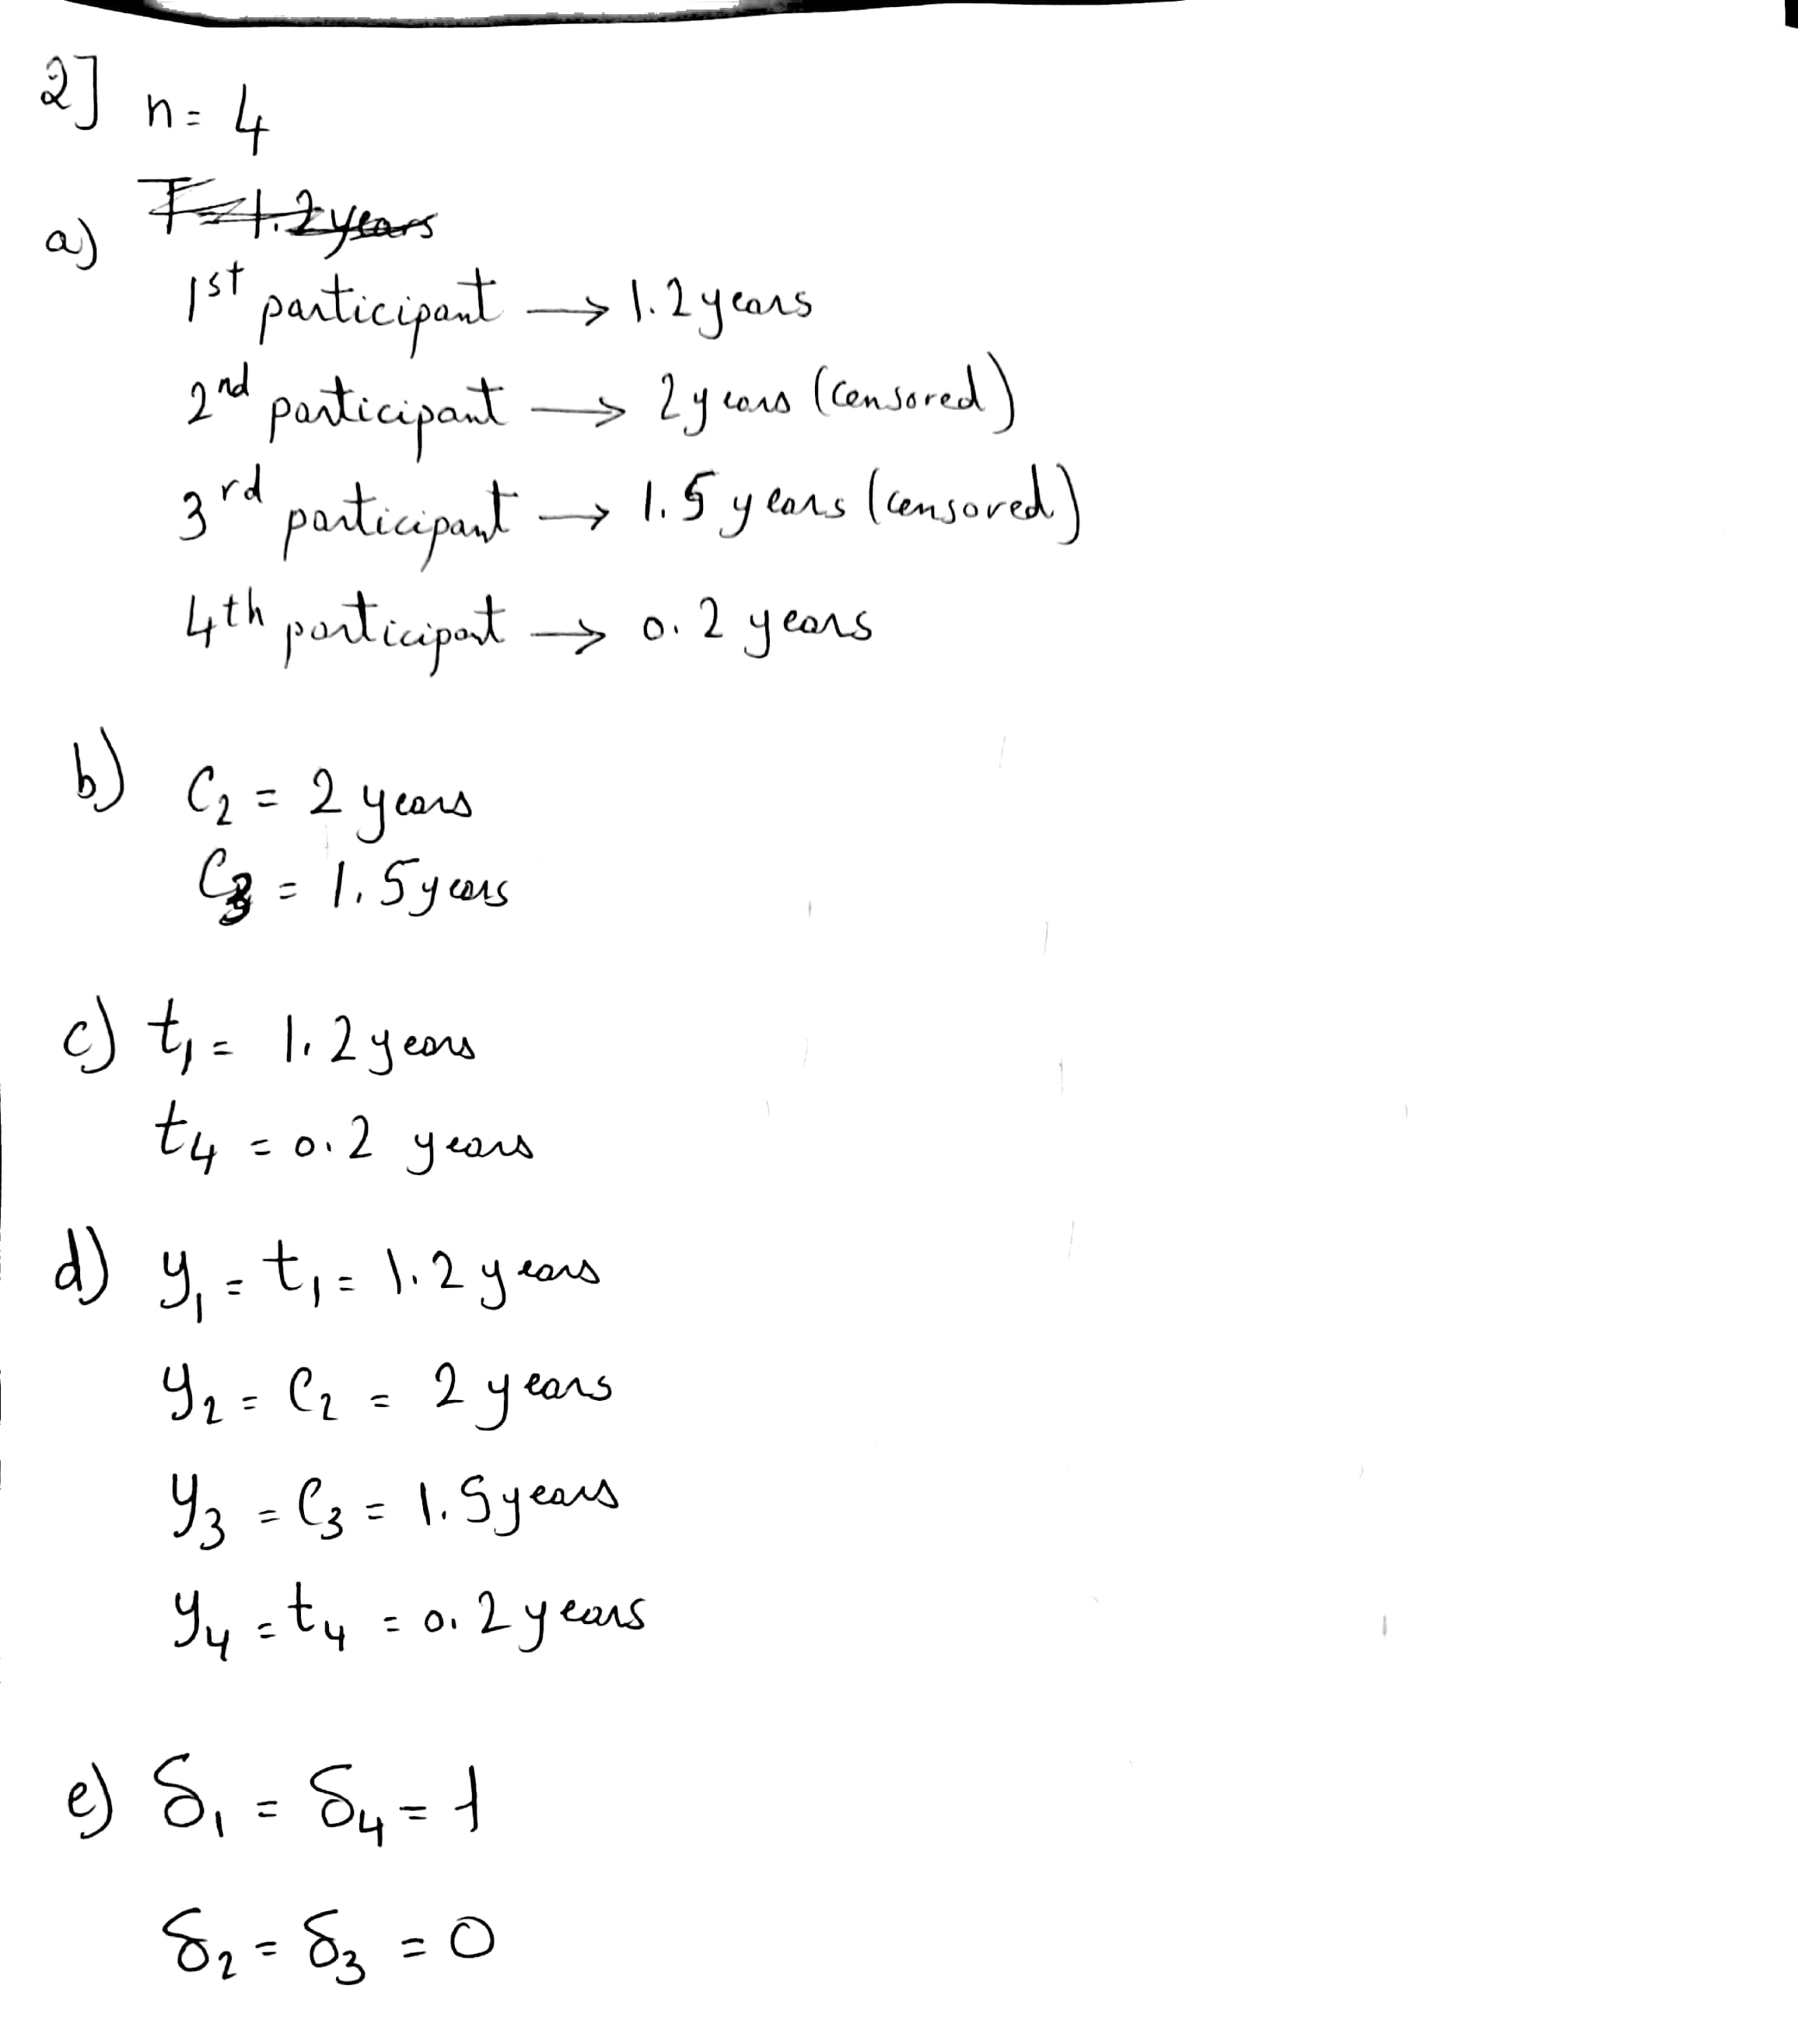 2] n = 4
a) T = 1.2 years
1st participant → 1.2 years
2nd participant → 2 years (censored)
3rd participant → 1.5 years (censored)
4th participant → 0.2 years
b) C₂ = 2 years
C₃ = 1.5 years
c) t₁ = 1.2 years
t₄ = 0.2 years
d) y₁ = t₁ = 1.2 years
y₂ = C₂ = 2 years
y₃ = C₃ = 1.5 years
y₄ = t₄ = 0.2 years
e) δ₁ = δ₄ = 1
δ₂ = δ₃ = 0